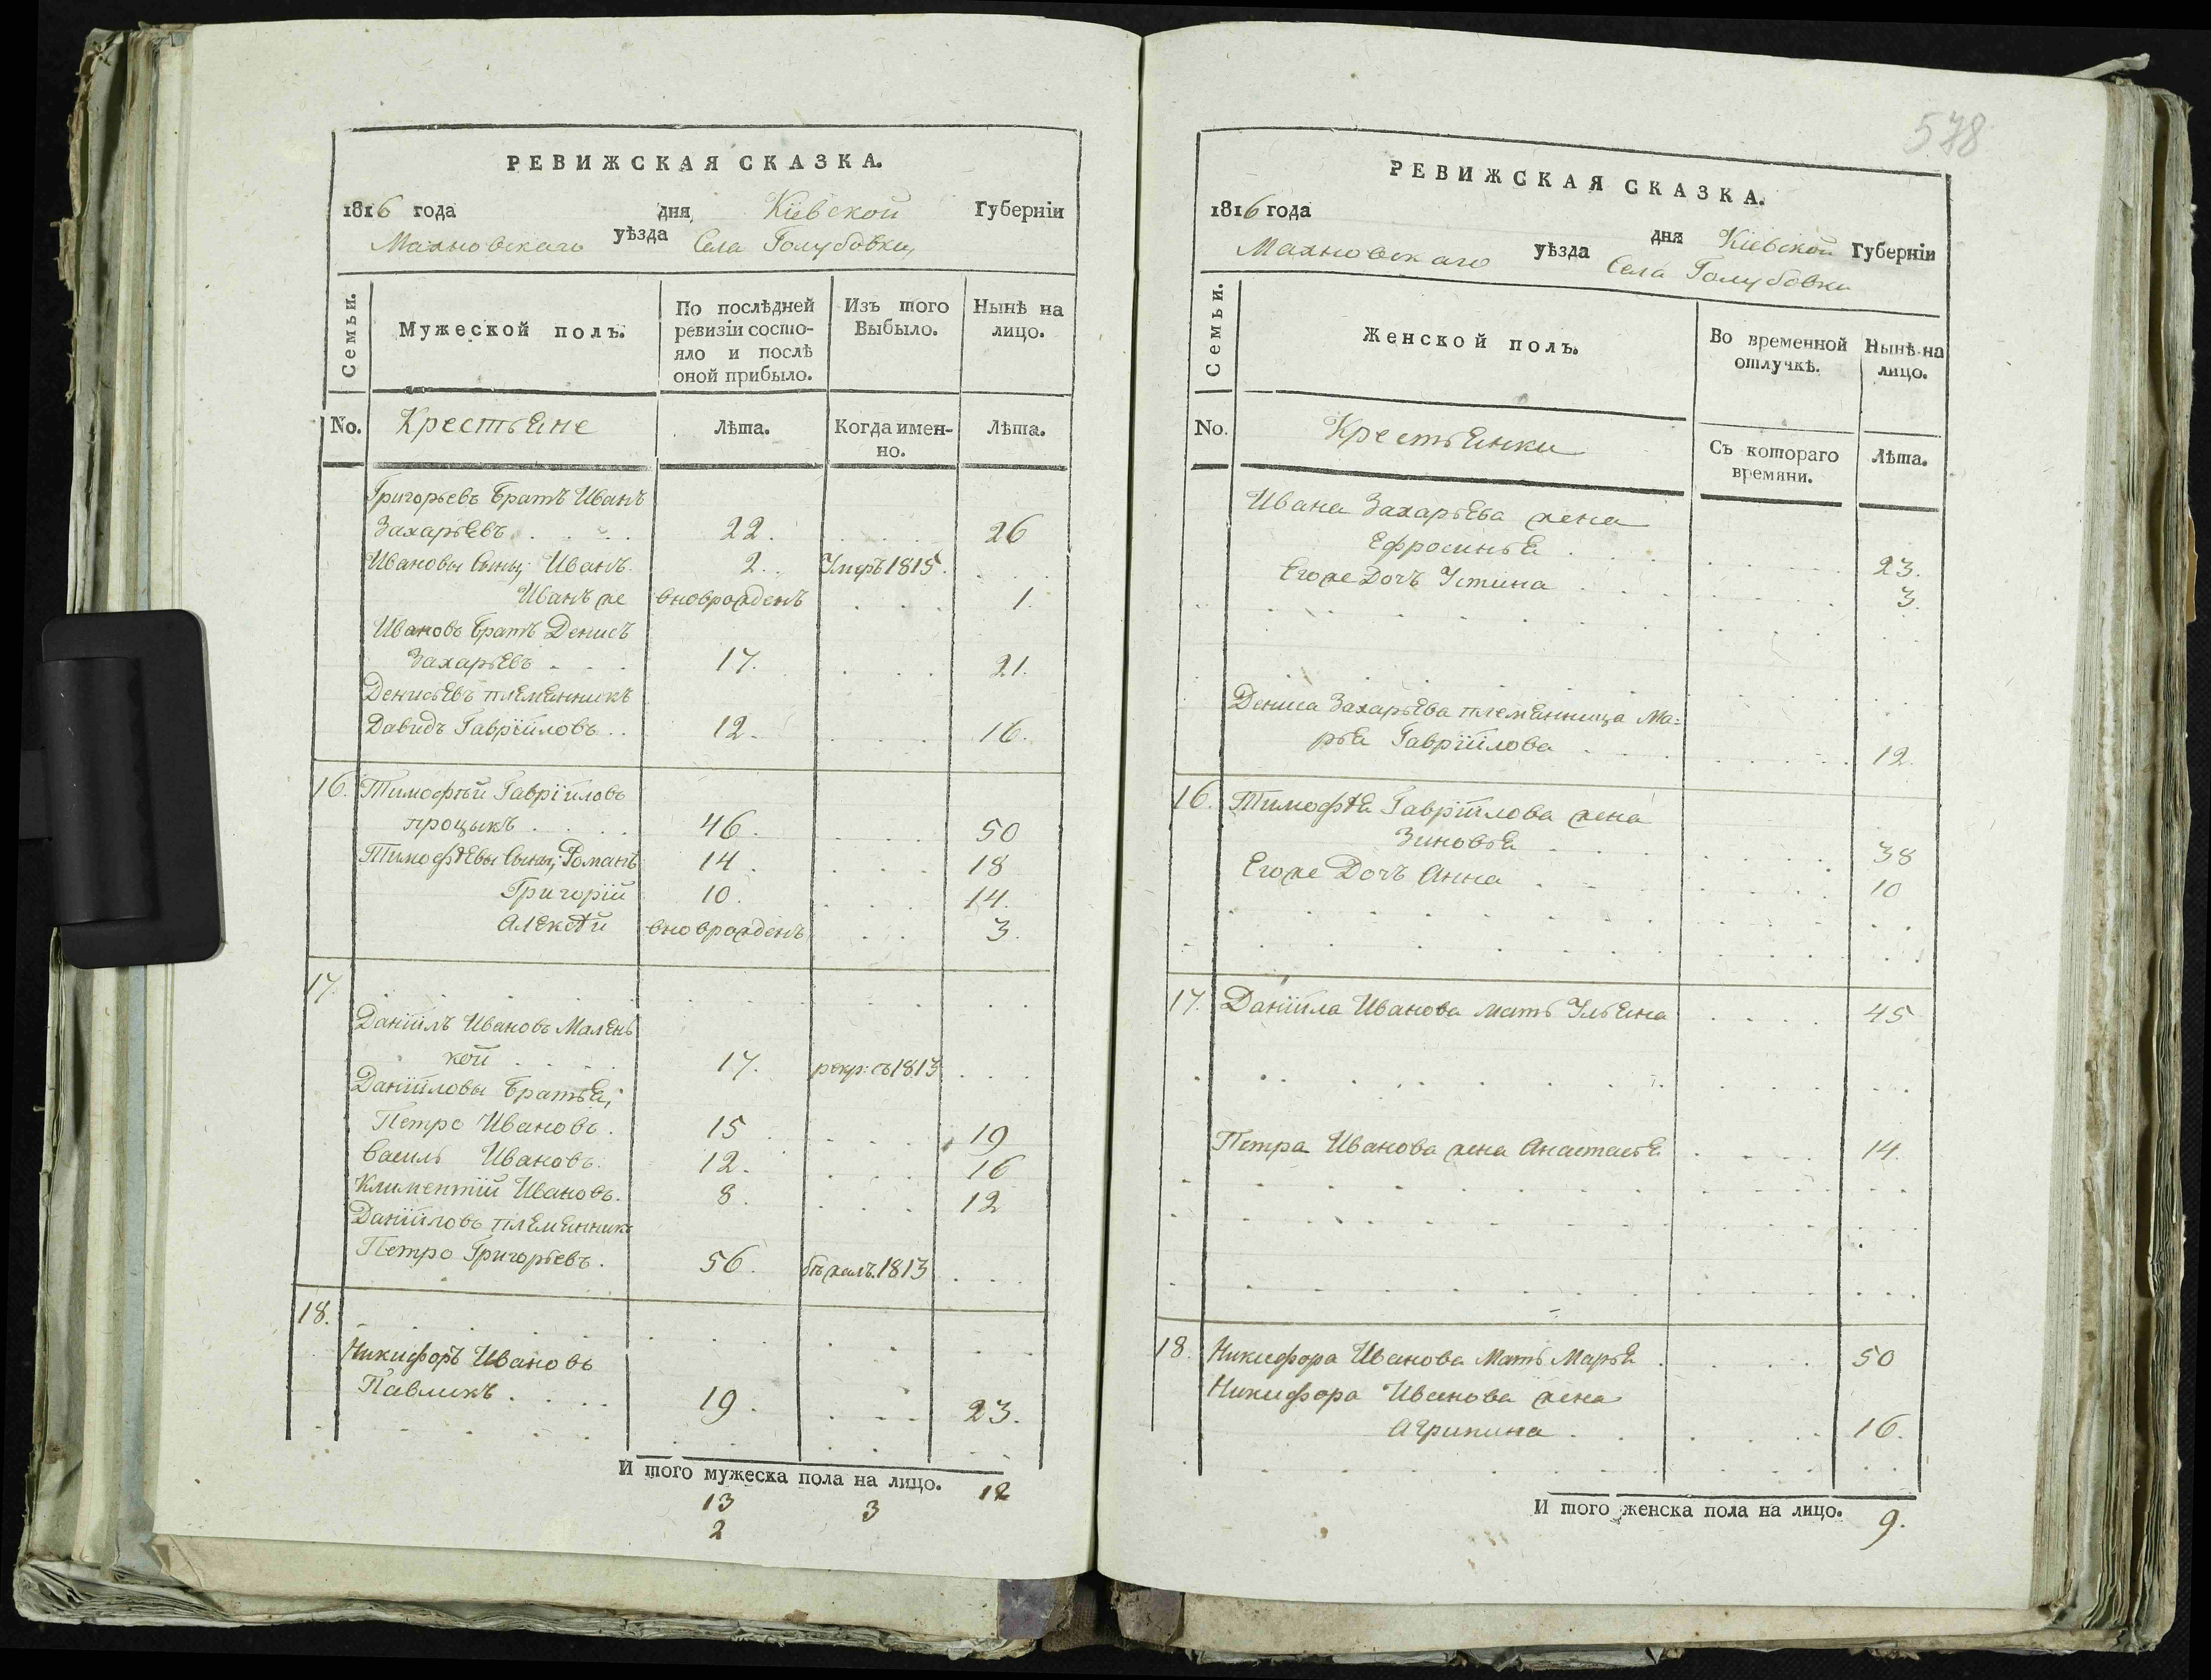 РЕВИЖСКАЯ СКАЗКА.
1816 года дня Кіевской Губерніи
Махновскаго уѣзда Села Голубовки,
Семьи.
Мужеской полъ.
По послѣдней
ревизіи состо-
яло и послѣ
оной прибыло.
Изъ того
Выбыло.
Нынѣ на
лицо.
No. Крестьяне Лѣта. Когда имен-
но.
Лѣта.
Григорьевъ братъ Иванъ
Захарьевъ . . . . 22. . . . 26
Ивановы сыны; Иванъ 2. Умръ 1815. . . .
Иванъ же вноврожденъ . . . 1.
Ивановъ братъ Денисъ
Захарьевъ . . . 17. . . . 21.
Денисьевъ племянникъ
Давидъ Гавріиловъ . . 12. . . . 16.
16. Тимофѣй Гавріиловъ
процыкъ . . . . 46. . . . 50
Тимофѣевы сыны; Романъ 14 . . . . 18
Григорій 10. . . . 14.
Алексѣй вноврожденъ . . . 3.
17.
Даніилъ Ивановъ Мален
кой . . . . 17. рекр: съ 1813 . . .
Даніиловы братья;
Петро Ивановъ. 15 . . . . 19
Василь Ивановъ. 12. . . . 16
Климентій Ивановъ. 8. . . . 12
Даніиловъ племянникъ
Петро Григорьевъ. 56. бѣжалъ. 1813 . . .
18.
Никифоръ Ивановъ
Павликъ . . . . 19. . . . 23.
И того мужеска пола на лицо. 12
13 3
2
578
РЕВИЖСКАЯ СКАЗКА.
1816 года дня Кіевской Губерніи
Махновскаго уѣзда Села Голубовки
Семьи.
Женской полъ.
Во временной
отлучкѣ.
Нынѣ на
лицо.
No. Крестьянки Съ котораго
времяни.
Лѣта.
Ивана Захарьева жена
Ефросинья . . . . 23.
Егоже Дочъ Устина . . . . 3.
Дениса Захарьева племянница Ма=
рья Гавріилова . . . . 12.
16. Тимофѣя Гавріилова жена
Зиновья . . . . 38
Егоже Дочъ Анна . . . . 10
17. Даніила Иванова мать Ульяна . . . . 45
Петра Иванова жена Анастасья . . . . 14.
18. Никифора Иванова Мать Марья . . . . 50
Никифора Иванова жена
Агрипина . . . . 16.
И того женска пола на лицо. 9.